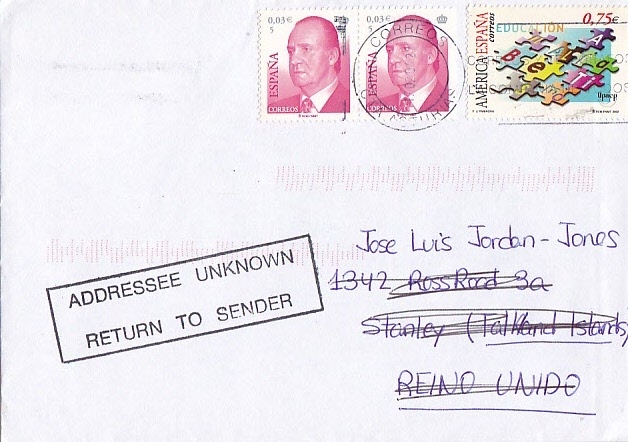 0,03€
5
ESPAÑA
CORREOS
0,03€
5
ESPAÑA
CORREOS
CORREOS
ASTURIAS
0,75€
EDUCACIÓN
AMÉRICA ESPAÑA
correos
ADDRESSEE UNKNOWN
RETURN TO SENDER
Jose Luis Jordan-Jones
1342 Ross Road 3a
Stanley (Falkland Islands)
REINO UNIDO